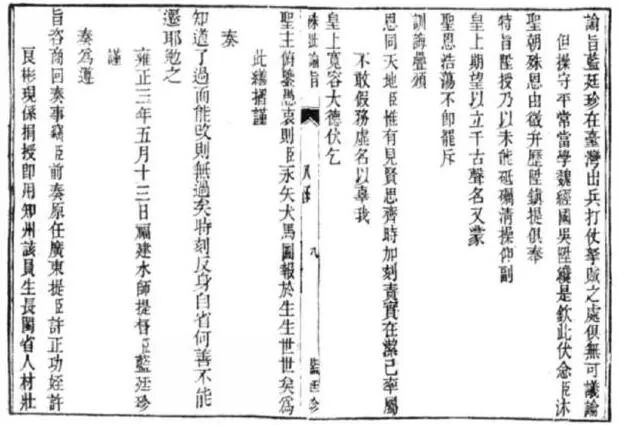 諭旨藍廷珍在臺灣出兵打仗拏賊之處俱無可議論
但操守平常當學魏經國吳陞纔是欽此伏念臣沐
聖朝殊恩由微弁歷陞鎮提俱奉
特旨陞授乃以未能砥礪清操仰副
皇上期望以立千古聲名又蒙
聖恩浩蕩不即罷斥
訓誨疊頒
恩同天地臣惟有見賢思齊時加刻責實在潔己率屬
不敢假務虛名以辜我
皇上寬容大德伏乞
硃批諭旨 八函 九 藍廷珍
聖主俯鑒愚衷則臣永矢犬馬圖報於生生世世矣為
此繕摺謹
奏
知道了過而能改則無過矣時刻反身自省何善不能
遷耶勉之
雍正三年五月十三日福建水師提督臣藍廷珍
謹
奏為遵
旨咨商回奏事竊臣前奏原任廣東提臣許正功姪許
良彬現係捐授即用知州該員生長閩省人材壯